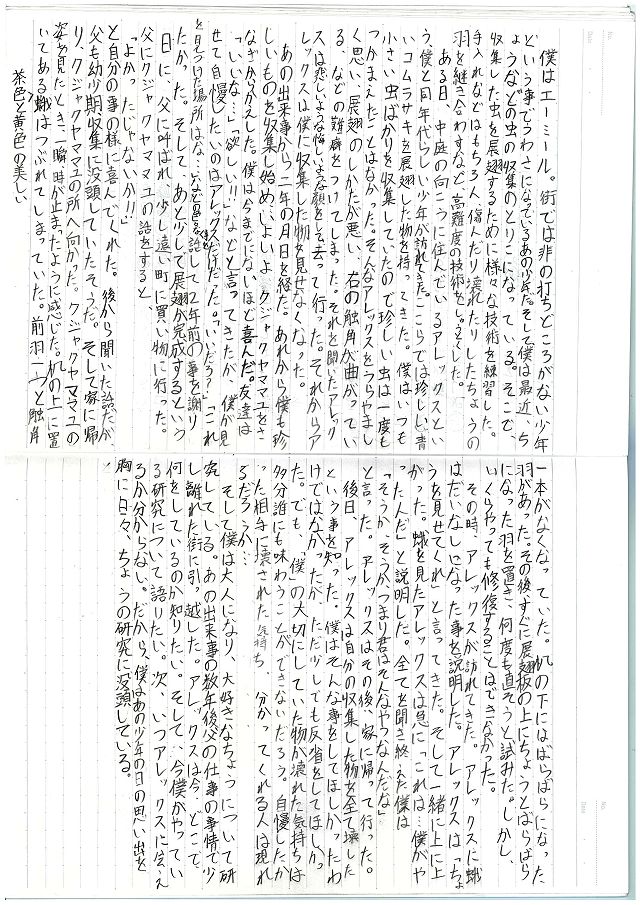 僕はエーミール。街では非の打ちどころがない少年
という事でうわさになっているあの少年だ。そして僕は最近、ち
ょうなどの虫の収集のとりこになっている。そこで、
収集した虫を展翅するために様々な技術を練習した。
手入れなどはもちろん、傷んだり壊れたりしたちょうの
羽を継ぎ合わすなど、高難度の技術をしゅうとくした。
ある日、中庭の向こうに住んでいるアレックスとい
う、僕と同年代らしい少年が訪れてきた。ここらでは珍しい、青
いコムラサキを展翅した物を持ってきた。僕はいつも
小さい虫ばかりを収集していたので珍しい虫は一度も
つかまえたことはなかった。そんなアレックスをうらやまし
く思い、展翅のしかたが悪い、右の触角が曲がってい
る、などの難癖をつけてしまった。それを聞いたアレック
スは悲しいような悔しいような顔をして去って行った。それからア
レックスは僕に収集した物を見せなくなった。
あの出来事から二年の月日を経た。あれから僕も珍
しいものを収集し始め、いよいよ、クジャクヤママユをさ
なぎからかえした。僕は今までにないほど喜んだ。友達は
「いいな…」「欲しい!!」などと言ってきたが、僕が見
せて自慢したいのはアレックスだけだった。「いいだろ？」「これ
を見つけた場所はな…」などと話して2年前の事を謝り
たかった。そして、あと少しで展翅が完成するという
日に、父に呼ばれ、少し遠い町に買い物に行った。
父にクジャクヤママユの話をすると、
「よかったじゃないか!!」
と自分の事の様に喜んでくれた。後から聞いた話だが、
父も幼少期収集に没頭していたそうだ。そして家に帰
り、クジャクヤママユの所へ向かった。クジャクヤママユの
姿を見たとき、一瞬時が止まったように感じた。机の上に置
いてある蛾はつぶれてしまっていた。前羽一つと触角
茶色と黄色の美しい
一本がなくなっていた。机の下にはばらばらになった
羽があった。その後、すぐに展翅板の上にちょうとばらばら
になった羽を置き、何度も直そうと試みた。しかし、
いくらやっても修復することはできなかった。
その時、アレックスが訪れてきた。アレックスに蛾
はだいなしになった事を説明した。アレックスは「ちょ
うを見せてくれ」と言ってきた。そして一緒に上に上
がった。蛾を見たアレックスは急に「これは…僕がや
ったんだ」と説明した。全てを聞き終えた僕は
「そうか、そうか、つまり君はそんなやつなんだな」
と言った。アレックスはその後、家に帰って行った。
後日、アレックスは自分の収集した物を全て壊した
という事を知った。僕はそんな事をしてほしかったわ
けではなかったが、ただ少しでも反省をしてほしかっ
た。でも、「僕」の大切にしていた物が壊れた気持ちは
多分誰にも味わうことができないだろう。自慢したか
った相手に壊された気持ち、分かってくれる人は現れ
るだろうか…
そして僕は大人になり、大好きなちょうについて研
究している。あの出来事の数年後父の仕事の事情で少
し離れた街に引っ越した。アレックスは今、どこで、
何をしているのか知りたい。そして、今僕がやってい
る研究について語りたい。次、いつアレックスに会え
るか分からない。だから、僕はあの少年の日の思い出を
胸に日々、ちょうの研究に没頭している。